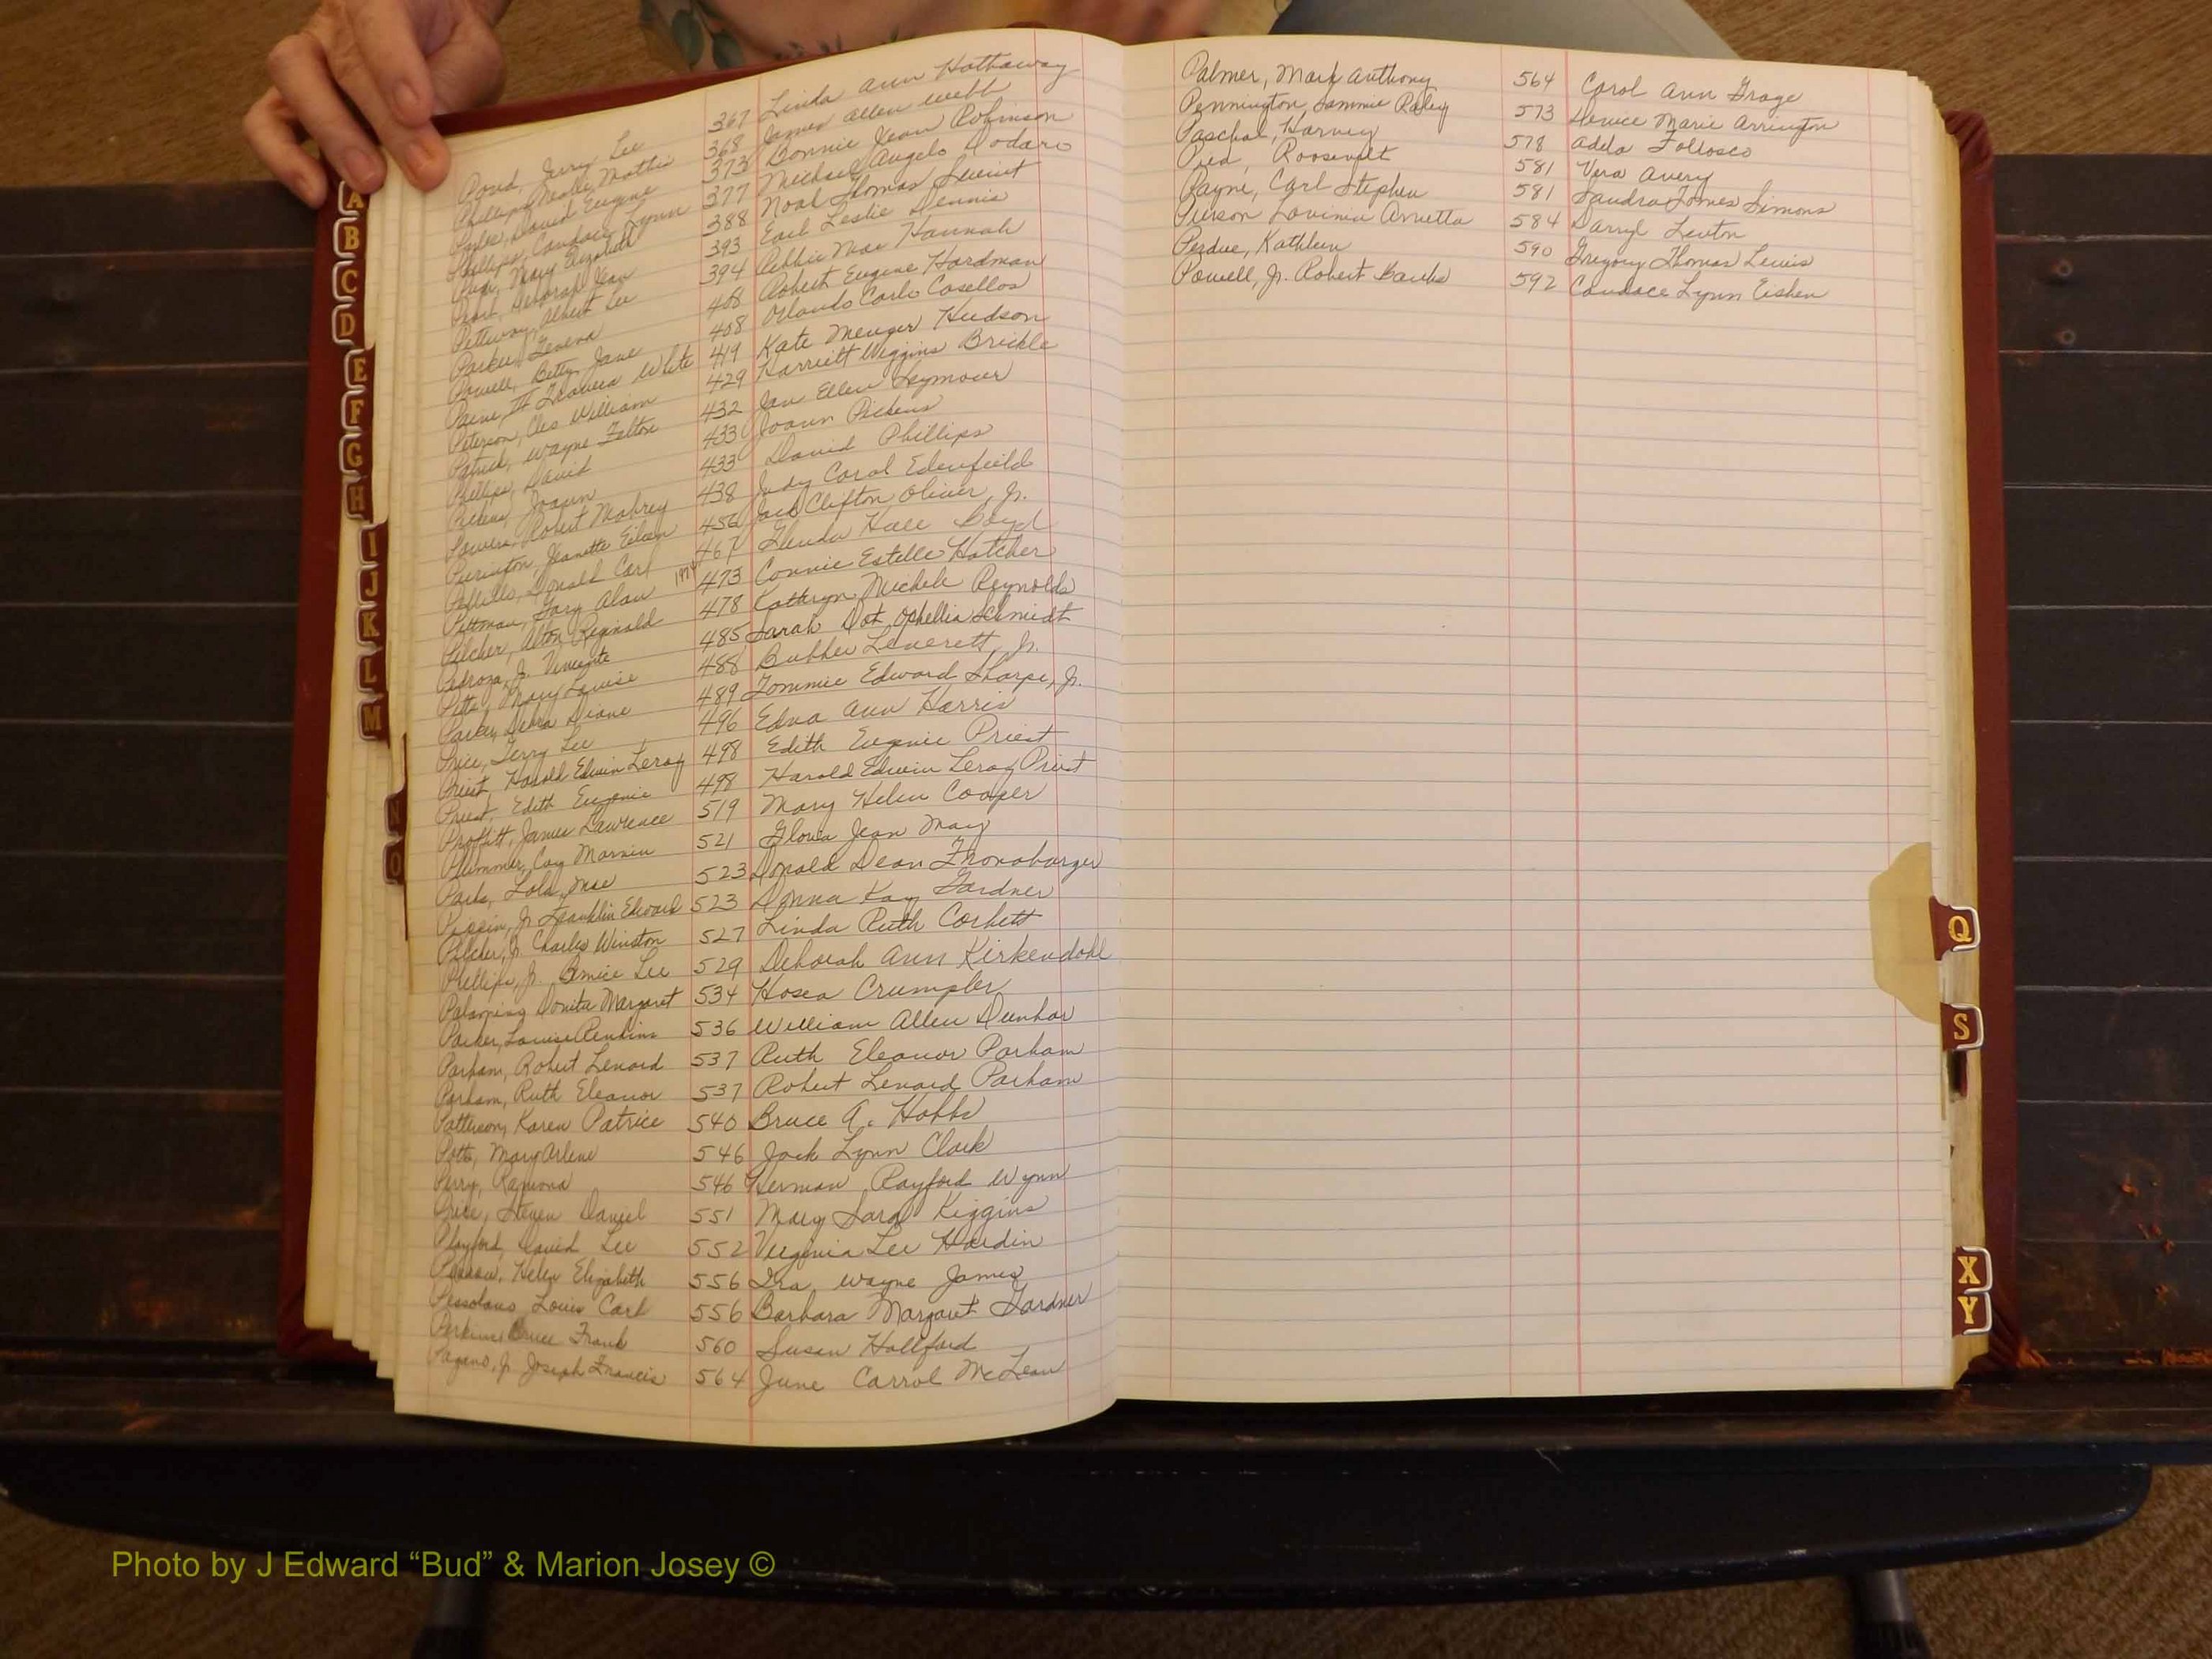 Pound, Jerry Lee 367 Linda Ann Hathaway
Phillips, Neale Mattie 368 James Allen Webb
David Eugene 373 Bonnie Jean Robinson
Phillips, Candace Lynn 377 Michael Angelo Dodaro
Mary Elizabeth 388 Noal Thomas
Deborah Jean 393 Earl Leslie Dennis
Petteway, Albert Lee 394 Debbie Mae Hannah
Parker, 408 Robert Eugene Hardman
Powell, Betty Jane 408 Orlando Carlo Casellos
Paine, III Travera White 419 Kate Menger Hudson
Peterson, Cles William 429 Harriett Wiggins Brickle
Patrick, Wayne Felton 432 Jan Ellen Seymour
Phillips, David 433 Joann Pickens
Pickens, Joann 433 David Phillips
Powers, Robert Mabrey 438 Judy Carol Edenfield
Purington, Jeanette Eileen 456 Jack Clifton Oliver, Jr.
Donald Carl 467 Glenda Hall Boyd
Pittman, Gary Alan 1974 473 Connie Estelle Hatcher
Pilcher, Alton Reginald 478 Kathryn Michele Reynolds
Pedroza, Jr. Vincente 485 Sarah Dot Ophellia Schmidt
Pitts, Mary Louise 488 Bubber Leverett, Jr.
Parker, Debra Diane 489 Tommie Edward Sharpe, Jr.
Price, Terry Lee 496 Edna Ann Harris
Priest, Harold Edwin Leroy 498 Edith Eugenie Priest
Priest, Edith Eugenie 498 Harold Edwin Leroy Priest
Proffitt, James Lawrence 519 Mary Helen Cooper
Plummer, Coy Marvin 521 Gloria Jean May
Parks, Lola Mae 523 Donald Dean Fronabarger
Pippin, Jr. Franklin Edward 523 Donna Kay Gardner
Pilcher, Jr. Charles Winston 527 Linda Ruth Corbett
Phillips, Jr. Bernice Lee 529 Deborah Ann Kirkendohl
Donita Margaret 534 Hosea Crumpler
Parker, Louise Perkins 536 William Allen Dunbar
Parham, Robert Lenard 537 Ruth Eleanor Parham
Parham, Ruth Eleanor 537 Robert Lenard Parham
Patterson, Karen Patrice 540 Bruce A. Hobbs
Potts, Mary Arlene 546 Jack Lynn Clark
Perry, Ramona 546 Herman Rayford Wynn
Price, Steven Daniel 551 Mary Sara Kiggins
Playford, David Lee 552 Virginia Lee Hardin
Helen Elizabeth 556 Ira Wayne James
Pessolano Louis Carl 556 Barbara Margaret Gardner
Perkins, Bruce Frank 560 Susan Hallford
Pagano, Jr. Joseph Francis 564 June Carrol McLean
Palmer, Mark Anthony 564 Carol Ann Grage
Pennington, Sammie Raley 573 Denice Marie Arrington
Paschal, Harvey 578 Adela Follosco
Roosevelt 581 Vera Avery
Payne, Carl Stephen 581 Sandra Tomes Simons
Pierson Lavinia Annetta 584 Darryl Lenton
Perdue, Kathleen 590 Gregory Thomas Lewis
Powell, Jr. Robert Banks 592 Candace Lynn Eisken
A
B
C
D
E
F
G
H
I
J
K
L
M
N
O
Q
S
X
Y
Photo by J Edward “Bud” & Marion Josey ©